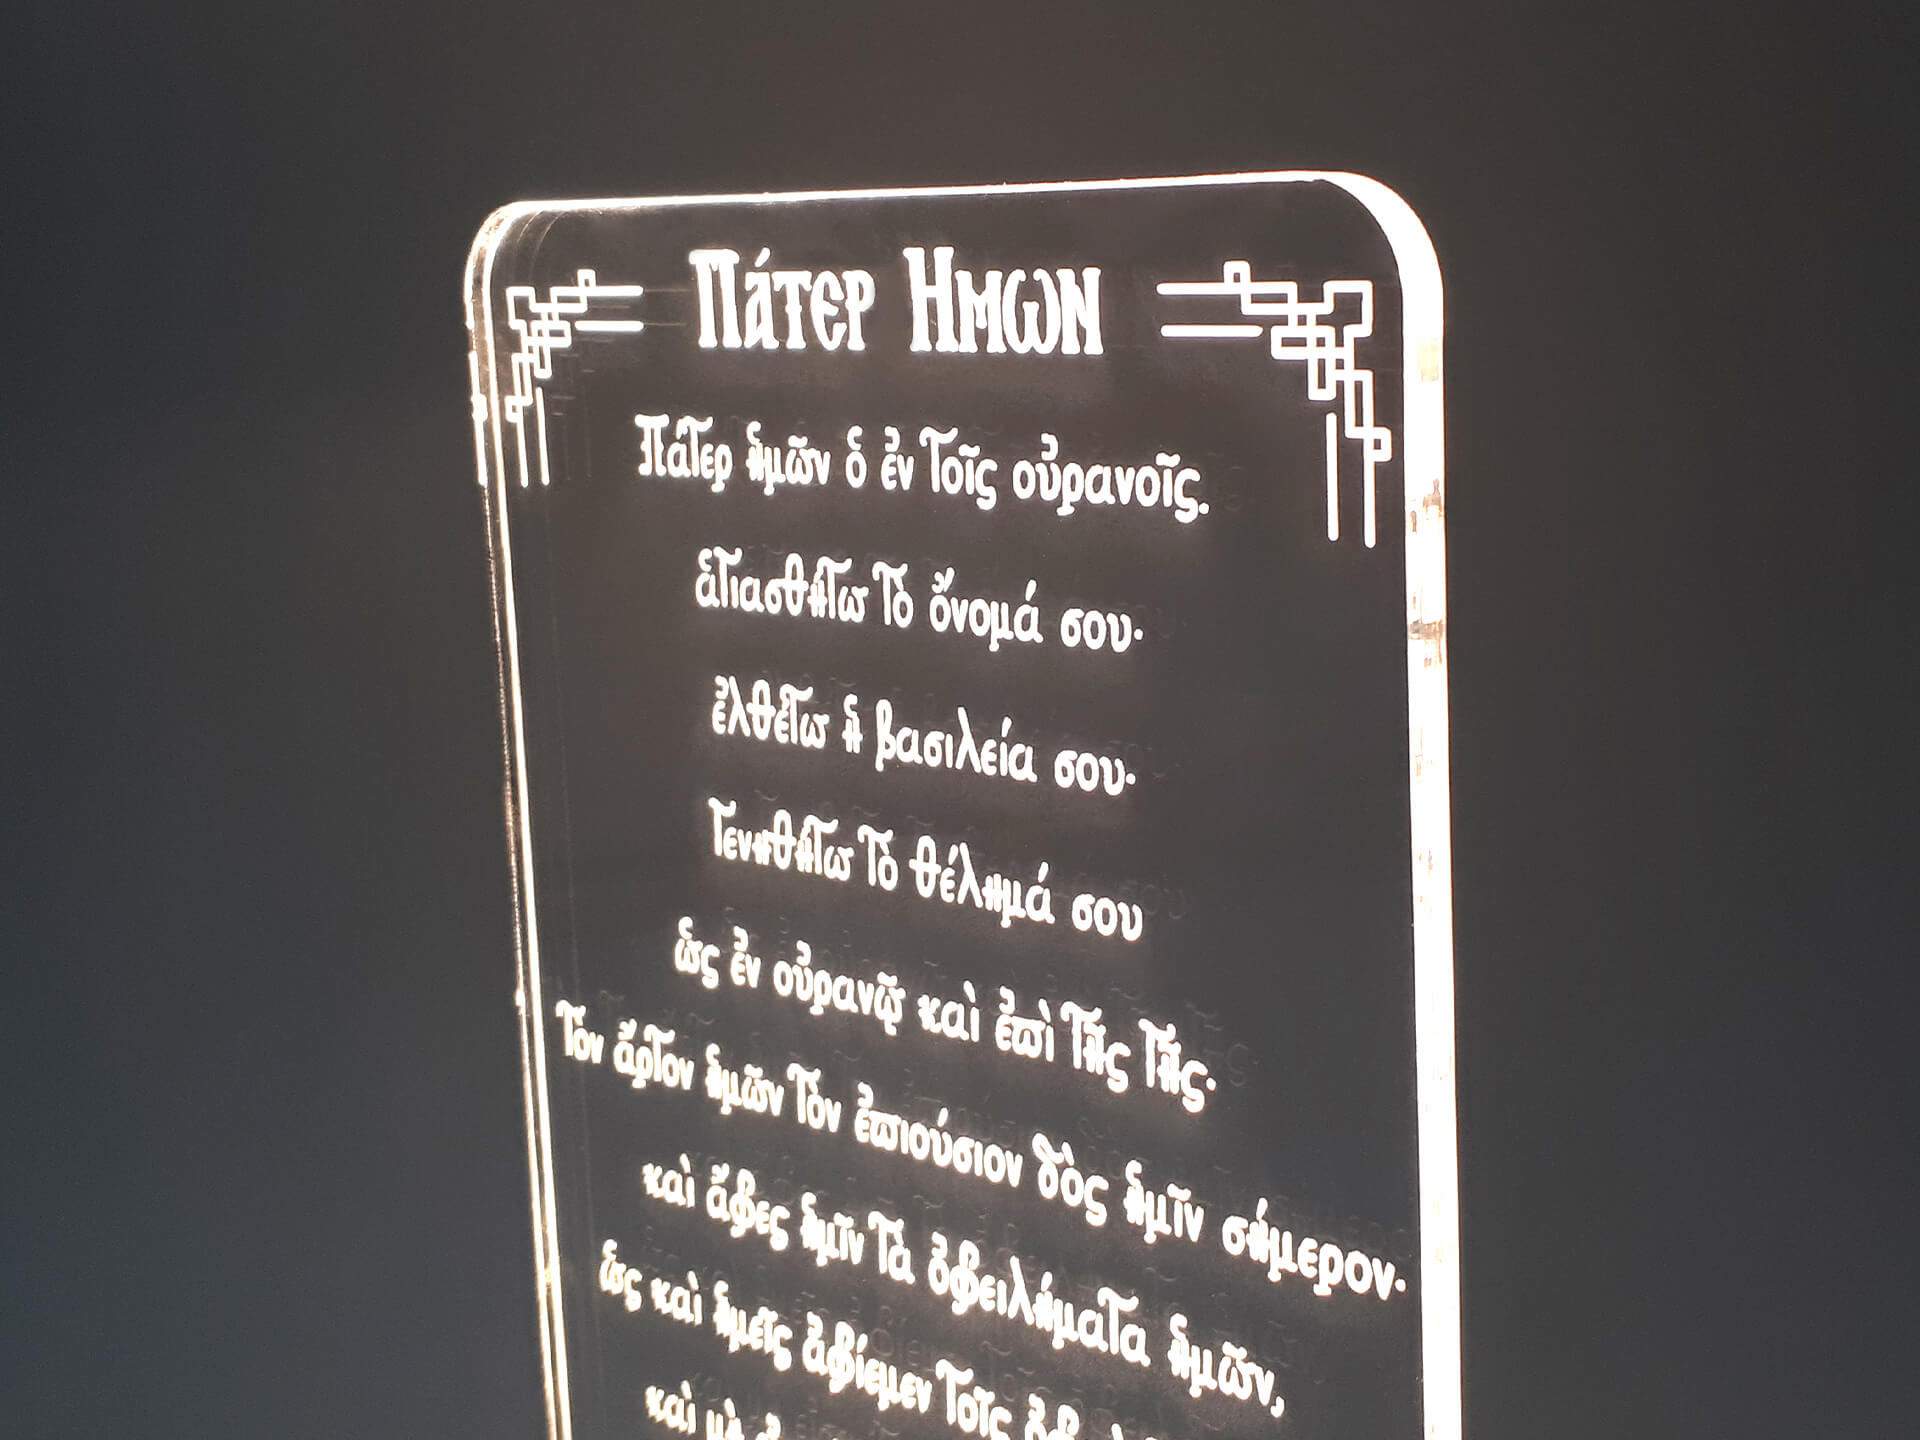 Πάτερ Ημων
Πάτερ ἡμῶν ὁ ἐν τοῖς οὐρανοῖς.
ἁγιασθήτω τὸ ὄνομά σου·
ἐλθέτω ἡ βασιλεία σου·
γενηθήτω τὸ θέλημά σου
ὡς ἐν οὐρανῷ καὶ ἐπὶ τῆς γῆς·
τὸν ἄρτον ἡμῶν τὸν ἐπιούσιον δὸς ἡμῖν σήμερον·
καὶ ἄφες ἡμῖν τὰ ὀφειλήματα ἡμῶν,
ὡς καὶ ἡμεῖς ἀφίεμεν τοῖς
καὶ μὴ